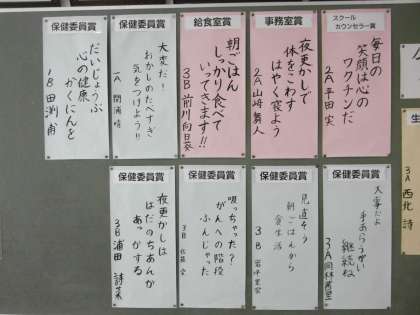 スクール
カウンセラー賞
毎日の
笑顔は心の
ワクチンだ
2A 平田 実
事務室賞
夜更かしで
体をこわす
はやく寝よう
2A 山崎 舞人
給食室賞
朝ごはん
しっかり食べて
いってきます!!
3B 前川 向日葵
保健委員賞
大変だ!
おかしのたべすぎ
気をつけよう!!
保健委員賞
だいじょうぶ
心の健康
かくにんを
1B 田渕 甫
保健委員賞
大事だよ
手あらうがい
継続ね
3A
保健委員賞
見直そう
朝ごはんから
食生活
3B
保健委員賞
吸っちゃった?
がんへの階段
ふんじゃった
3B 佐藤
保健委員賞
夜更かしは
はだのちあんが
あっかする
3B 浦田 詩菜
3A 西北 詩